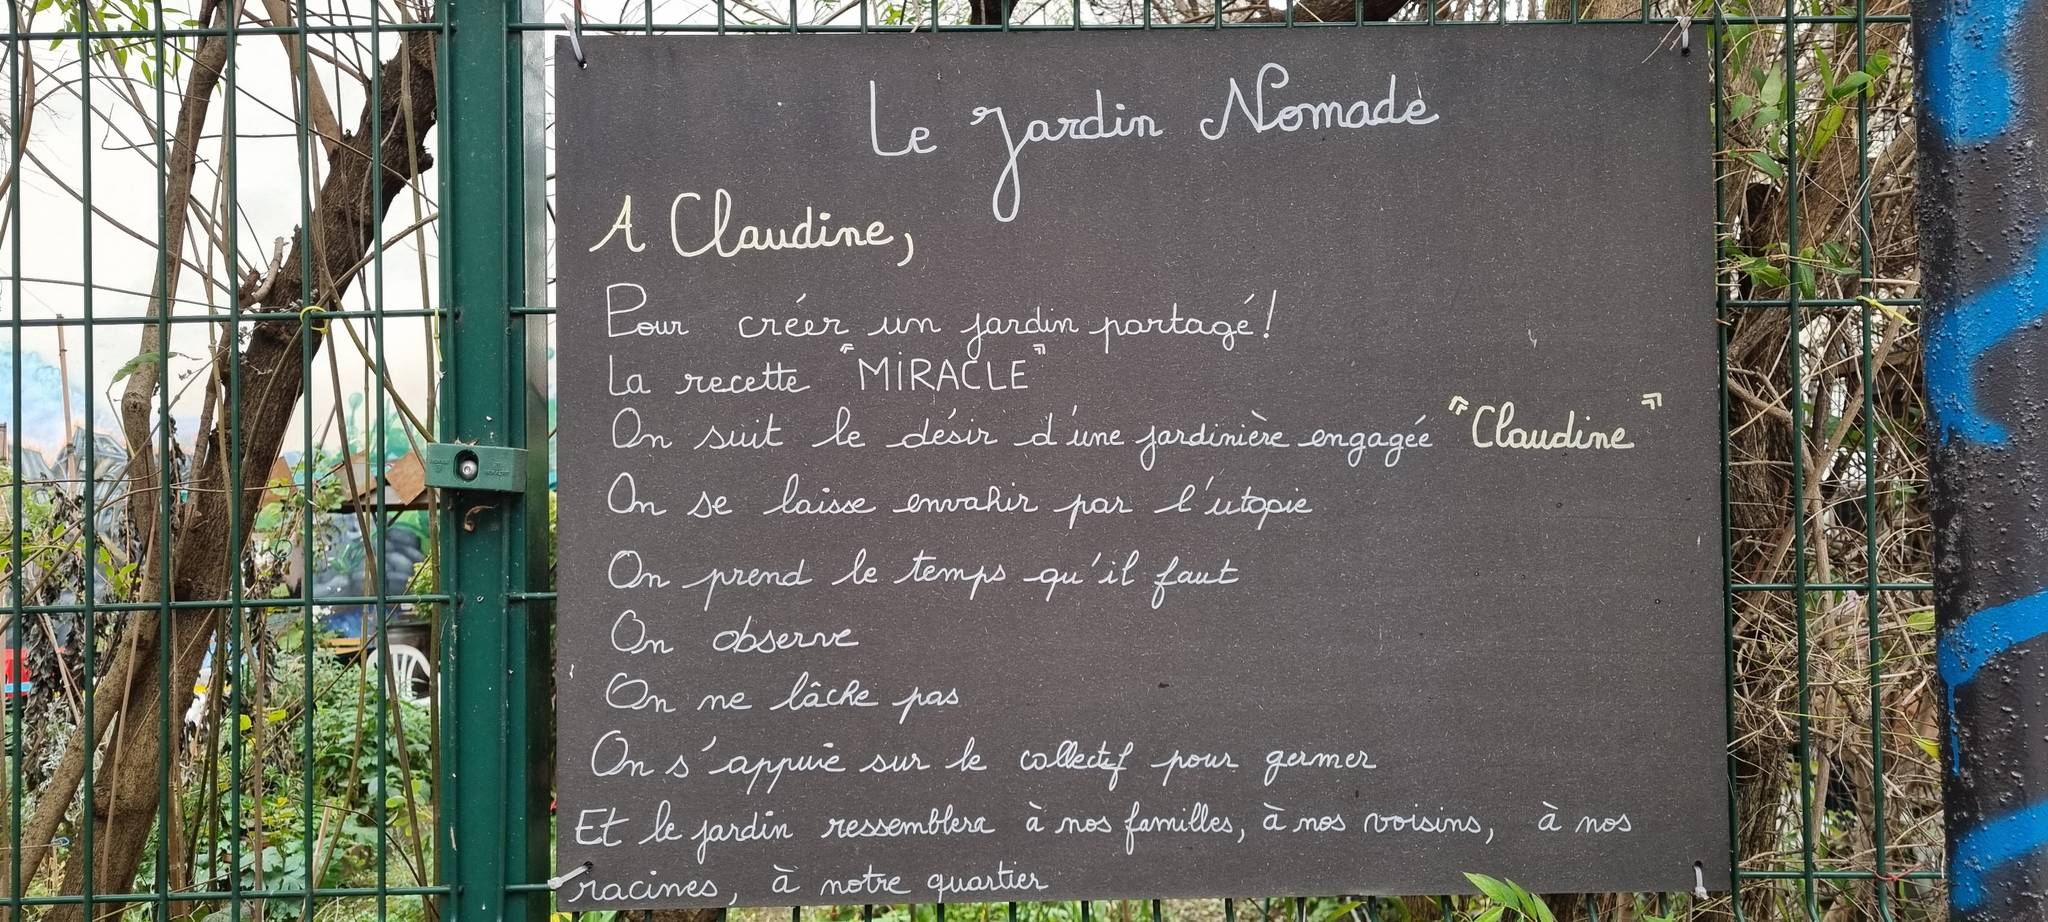 Le Jardin Nomade
A Claudine,
Pour créer un jardin partagé!
La recette "MIRACLE"
On suit le désir d'une jardinière engagée "Claudine"
On se laisse envahir par l'utopie
On prend le temps qu'il faut
On observe
On ne lâche pas
On s'appuie sur le collectif pour germer
Et le jardin ressemblera à nos familles, à nos voisins, à nos
racines, à notre quartier